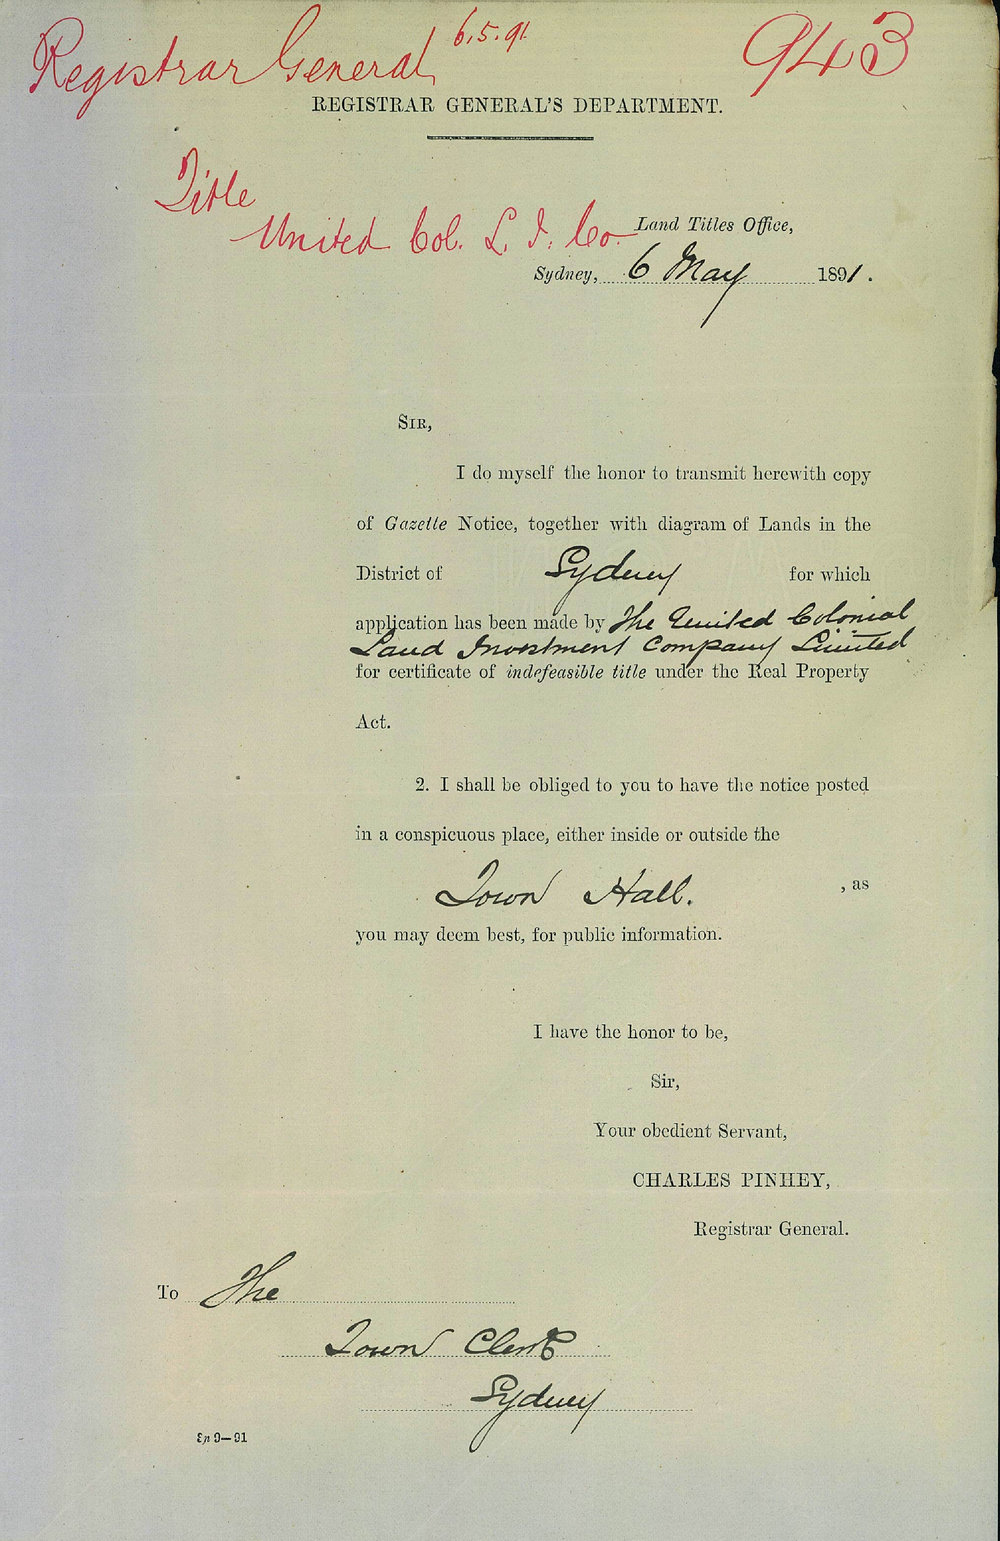 Registrar General 6.5.91 943
REGISTRAR GENERAL'S DEPARTMENT.
Title
United Col. L. I. Co.
Land Titles Office,
Sydney, 6 May 1891.
SIR,
I do myself the honor to transmit herewith copy
of Gazette Notice, together with diagram of Lands in the
District of Sydney for which
application has been made by The United Colonial
Land Investment Company Limited
for certificate of indefeasible title under the Real Property
Act.
2. I shall be obliged to you to have the notice posted
in a conspicuous place, either inside or outside the
Town Hall. , as
you may deem best, for public information.
I have the honor to be,
Sir,
Your obedient Servant,
CHARLES PINHEY,
Registrar General.
To The
Town Clerk
Sydney
9—91